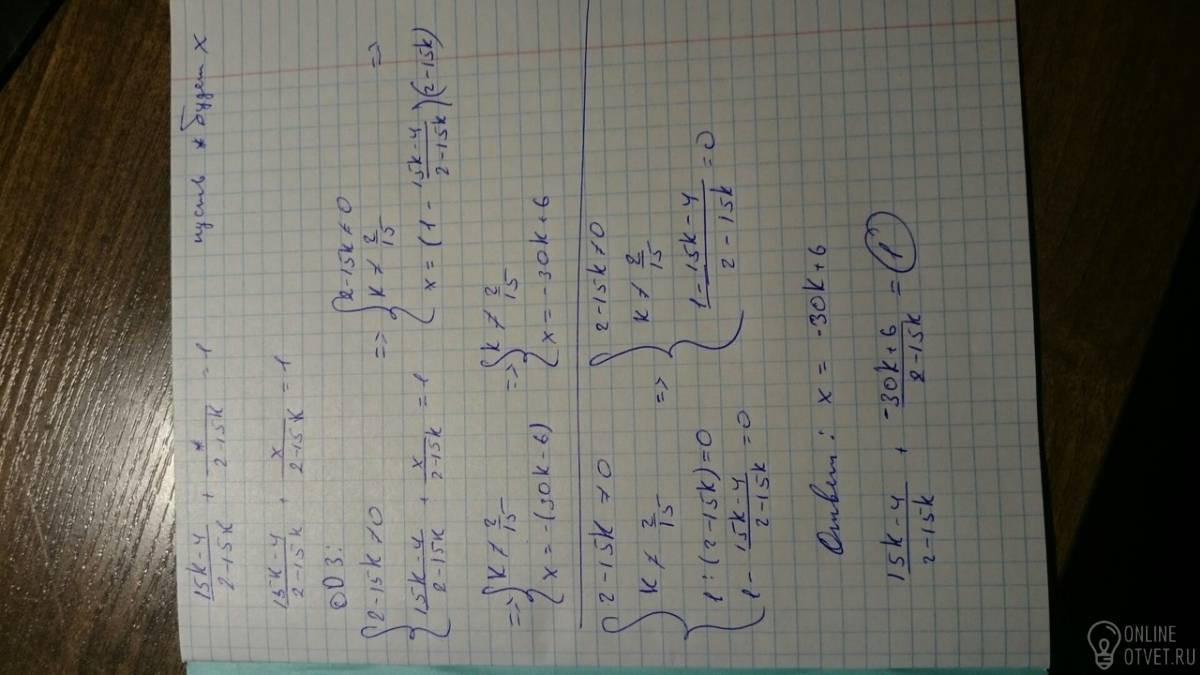 (15k-4)/(2-15k) + */(2-15k) = 1 пусть * будет x
(15k-4)/(2-15k) + x/(2-15k) = 1
ОДЗ:
{ 2-15k≠0 => { 2-15k≠0
k≠2/15 =>
(15k-4)/(2-15k) + x/(2-15k) = 1 x = (1 - (15k-4)/(2-15k))(2-15k)
=> { k≠2/15 => { k≠2/15
x = -(30k-6) x = -30k+6
{ 2-15k≠0 { 2-15k≠0
k≠2/15 => k≠2/15
{ 1:(2-15k)=0 { (1-15k-4)/(2-15k) = 0
1 - (15k-4)/(2-15k) = 0
Ответ: x = -30k+6
(15k-4)/(2-15k) + (-30k+6)/(2-15k) = 1
ONLINE
OTVET.RU